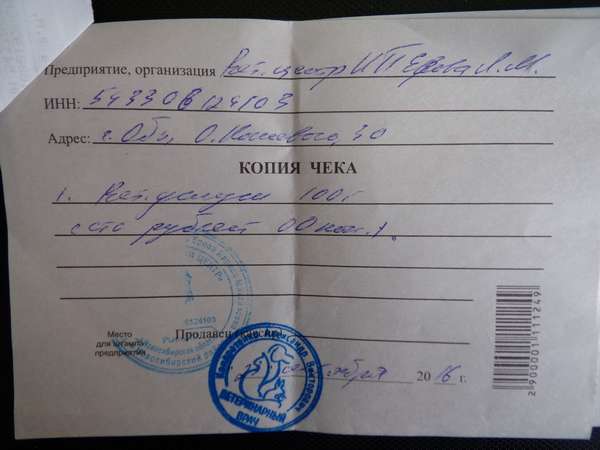 Предприятие, организация Вет. центр ИП Ефова Л.М.
ИНН: 543306124103
Адрес: г. Обь, О. Кошевого, 30
КОПИЯ ЧЕКА
1. Вет. услуги 100 г
(сто рублей 00 коп.).
Место
для штампа
предприятия
Продавец
2016 г.
ВЕТЕРИНАРНЫЙ
ВРАЧ
2900001111249